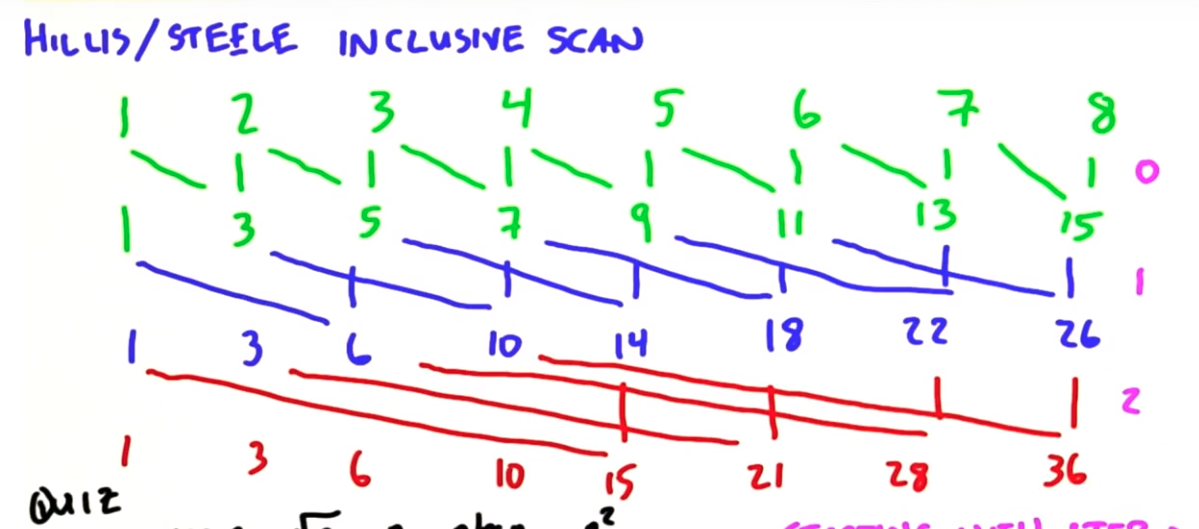 HILLIS/STEELE INCLUSIVE SCAN
1 2 3 4 5 6 7 8
0
1 3 5 7 9 11 13 15
1
1 3 6 10 14 18 22 26
2
1 3 6 10 15 21 28 36
QUIZ